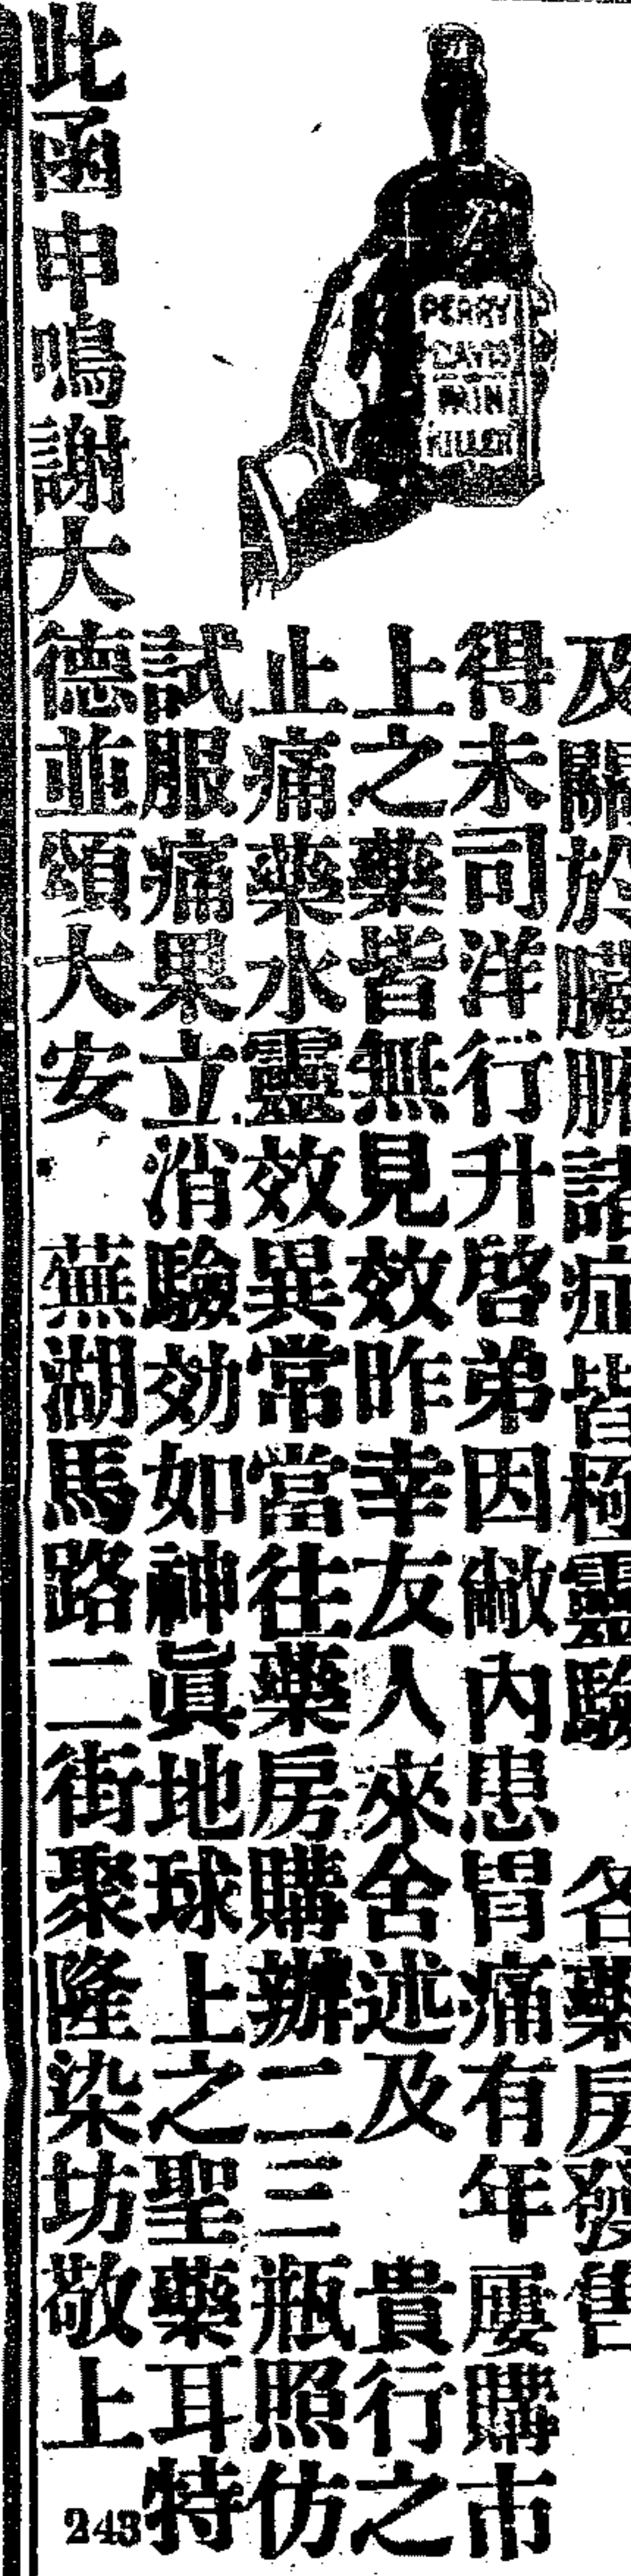 PERRY
DAVIS
PAIN
KILLER
及關於臟腑諸症皆極靈驗 各藥房發售
得未司洋行升啓弟因敝內患胃痛有年屢購市
上之藥皆無見效昨幸友人來舍述及 貴行之
止痛藥水靈效異常當往藥房購辦二三瓶照仿
試服痛果立消驗効如神眞地球上之聖藥耳特
此函申鳴謝大德並頌大安 蕪湖馬路二街聚隆染坊敬上
243